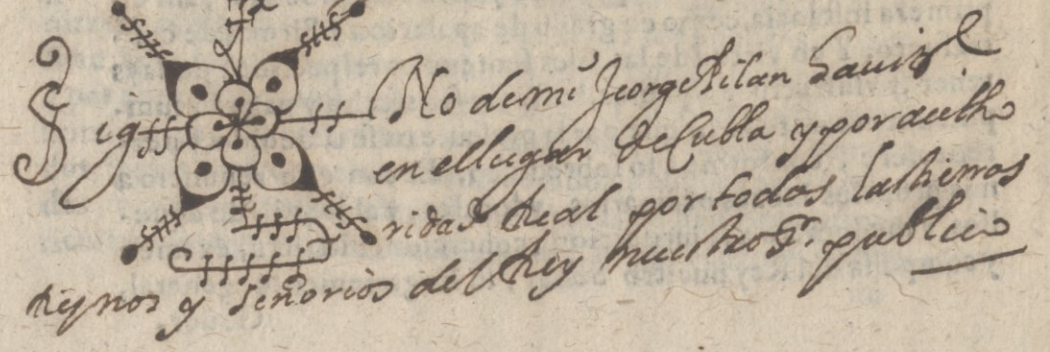 Sig No de mi Jeorge Milan havit.e
en el lugar de Cubla y por autho
ridad Real por todas las tierras
Reynos y Señorios del Rey nuestro S.r publico